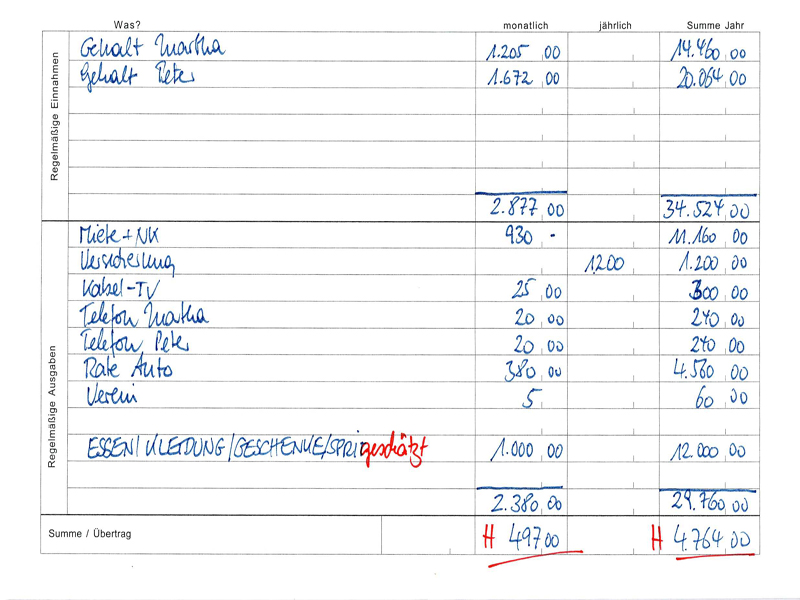 Was? monatlich jährlich Summe Jahr
Regelmäßige Einnahmen
Gehalt Martha 1.205,00 14.460,00
Gehalt Peter 1.672,00 20.064,00
2.877,00 34.524,00
Regelmäßige Ausgaben
Miete + NK 930,- 11.160,00
Versicherung 1200 1.200,00
Kabel-TV 25,00 300,00
Telefon Martha 20,00 240,00
Telefon Peter 20,00 240,00
Rate Auto 380,00 4.560,00
Verein 5 60,00
ESSEN/KLEIDUNG/GESCHENKE/SPRI geschätzt 1.000,00 12.000,00
2.380,00 29.760,00
Summe / Übertrag H 497,00 H 4.764,00